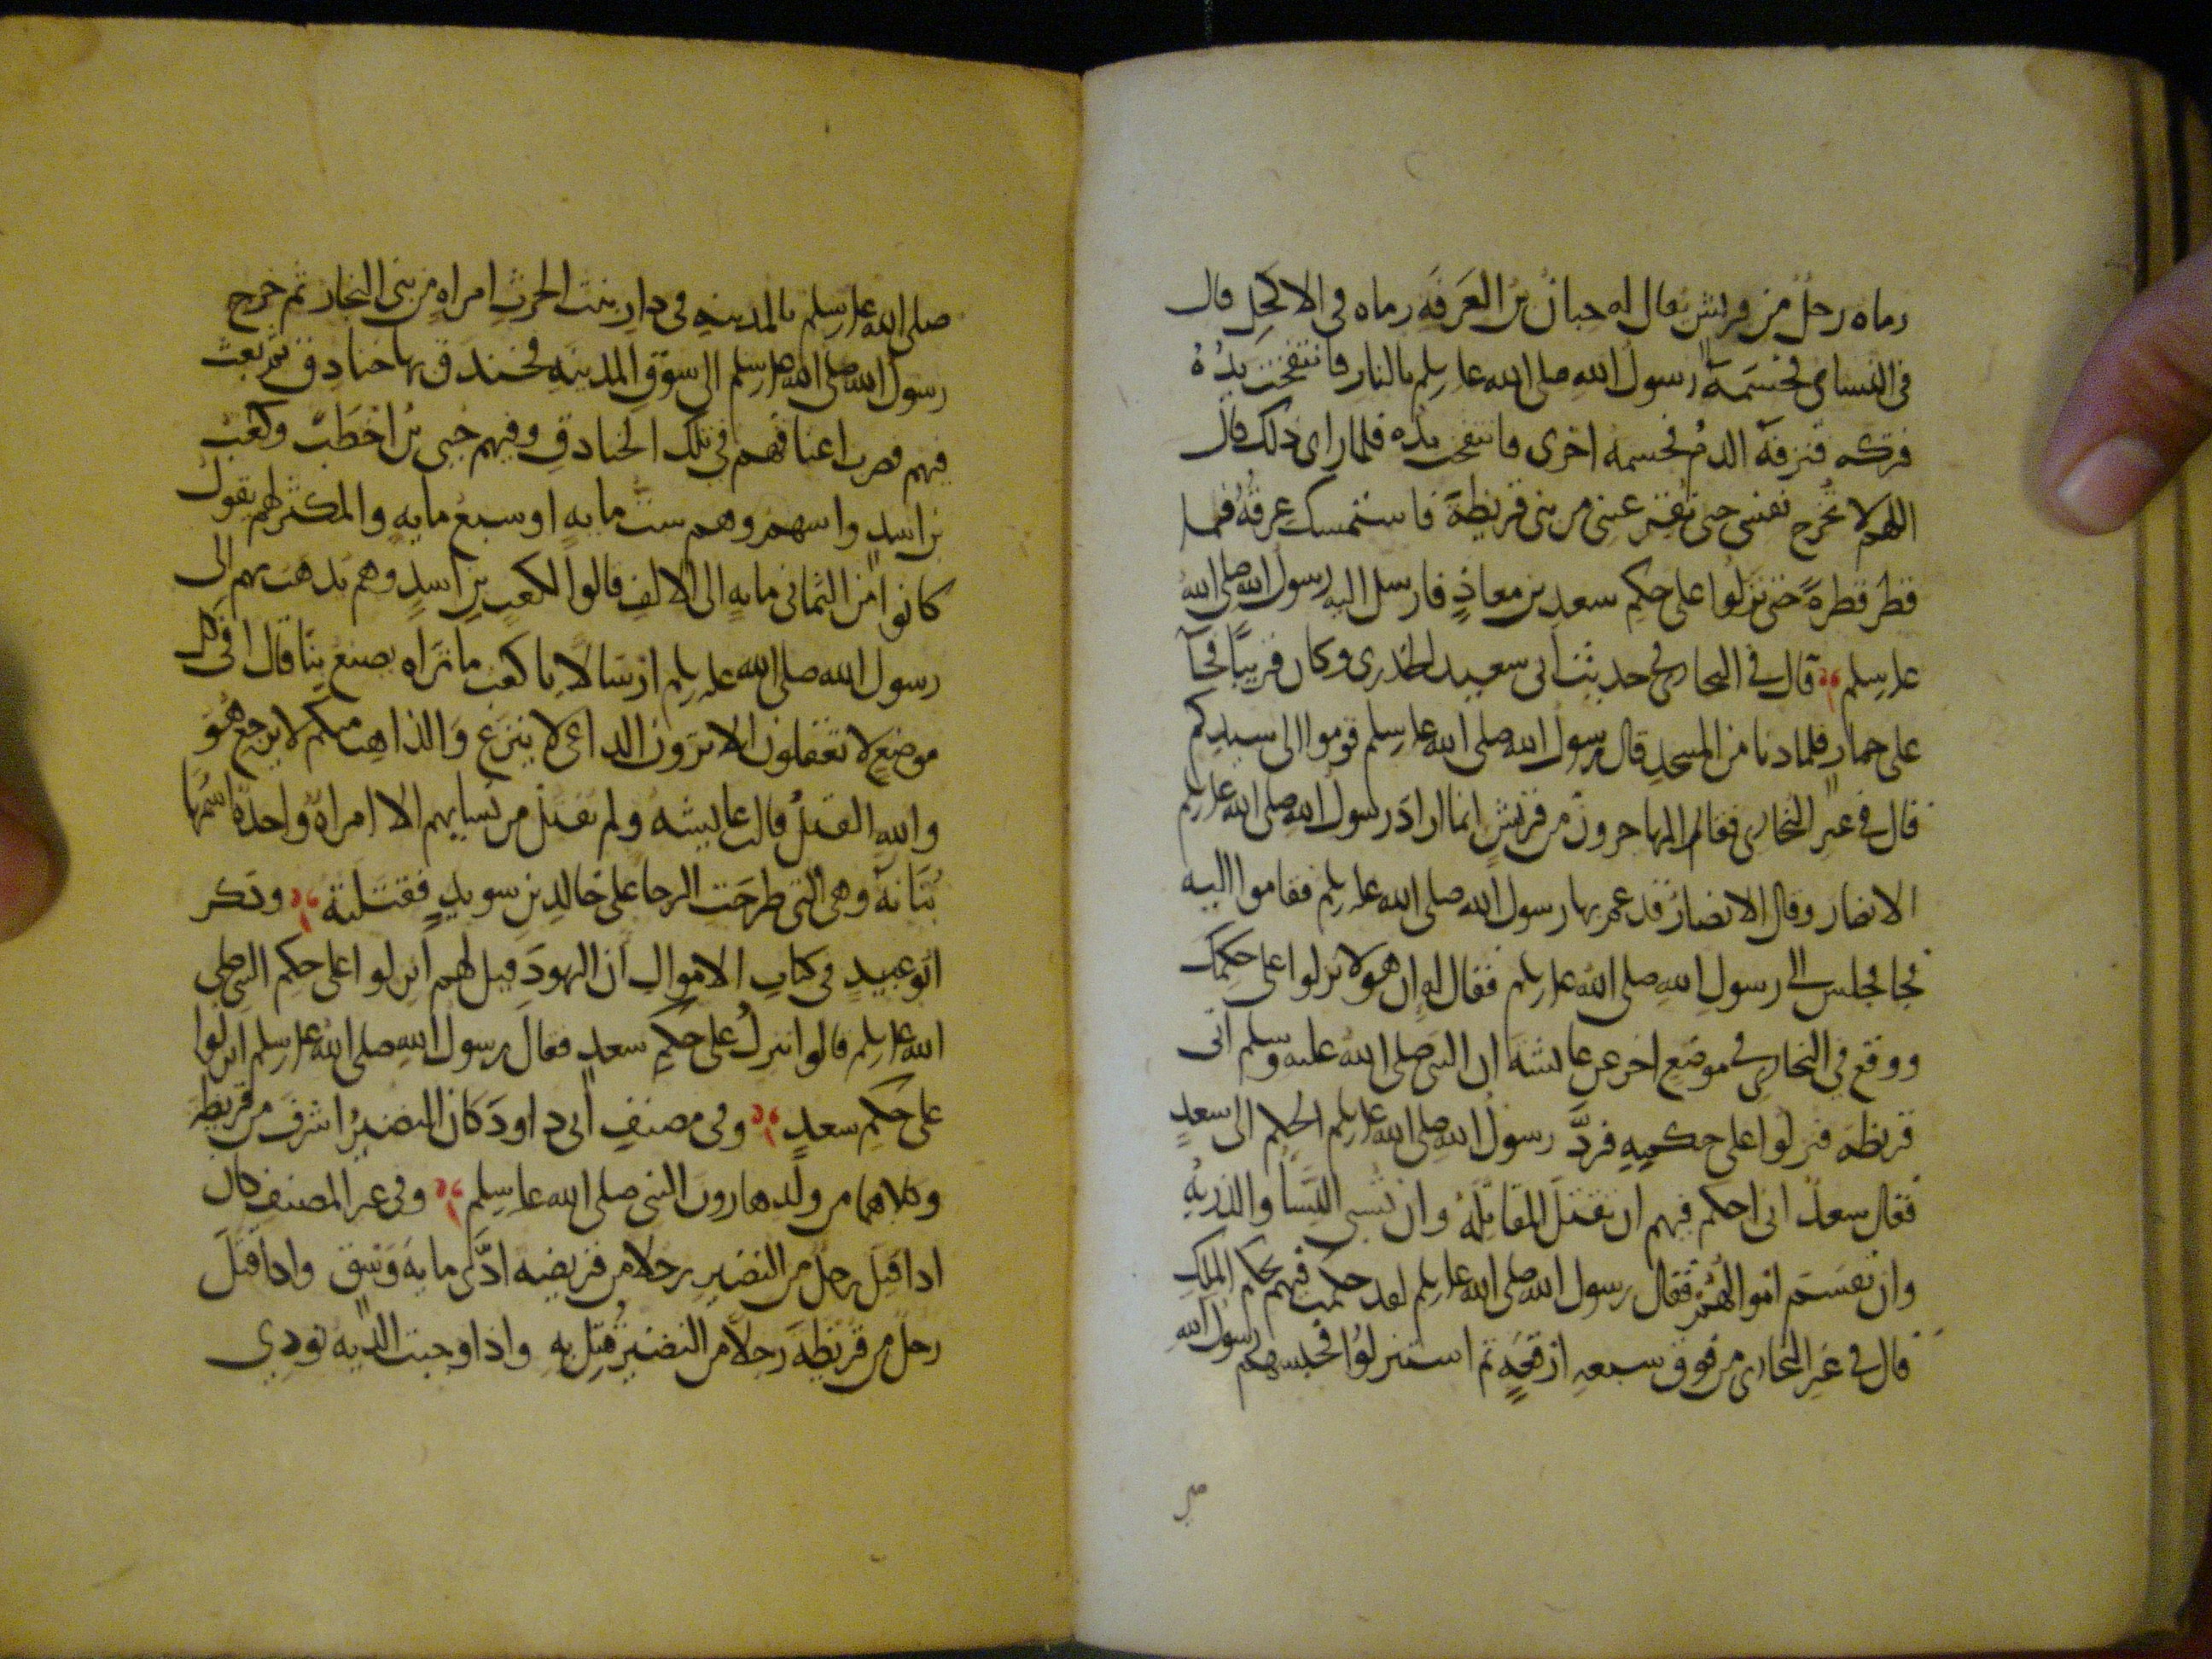 رماه رجل من قريش يقال له حبان بن العرقة رماه في الاكحل قال
في النساى فحسمه رسول الله صلى الله عليه وسلم بالنار فانتفخت يده
فتركه فنزفه الدم فحسمه اخرى فانتفخت يده فلما راى ذلك قال
اللهم لا تخرج نفسي حتى تقر عيني من بني قريظة فاستمسك عرقه فما
قطر قطرة حتى نزلوا على حكم سعد بن معاذ فارسل اليه رسول الله صلى الله
عليه وسلم قال في البخاري في حديث ابي سعيد الخدري وكان قريبا فجا
على حمار فلما دنا من المسجد قال رسول الله صلى الله عليه وسلم قوموا الى سيدكم
قال في غير البخاري فقال المهاجرون من قريش انما اراد رسول الله صلى الله عليه وسلم
الانصار وقال الانصار قد عم بها رسول الله صلى الله عليه وسلم فقاموا اليه
فجا فجلس الى رسول الله صلى الله عليه وسلم فقال له ان هولا نزلوا على حكمك
ووقع في البخاري في موضع اخر عن عايشة ان النبي صلى الله عليه وسلم اتى
قريظة فنزلوا على حكمه فرد رسول الله صلى الله عليه وسلم الحكم الى سعد
فقال سعد اني احكم فيهم ان تقتل المقاتلة وان تسبى النسا والذرية
وان تقسم اموالهم فقال رسول الله صلى الله عليه وسلم لقد حكمت فيهم بحكم الملك
قال في غير البخاري من فوق سبعة ارقعة ثم استنزلوا فحبسهم رسول الله
صلى الله عليه وسلم بالمدينة في دار بنت الحرث امراة من بني النجار ثم خرج
رسول الله صلى الله عليه وسلم الى سوق المدينة فخندق بها خنادق ثم بعث
فيهم فضرب اعناقهم في تلك الخنادق وفيهم حيي بن اخطب وكعب
بن اسد واسهم وهم ست ماية او سبع ماية والمكثر لهم يقول
كانوا من الثماني ماية الى الالف قالوا لكعب بن اسد وهم يذهب بهم الى
رسول الله صلى الله عليه وسلم ارسالا يا كعب ما تراه يصنع بنا قال افي كل
موضع لا تعقلون الا ترون الداعي لا ينزع والذاهب منكم لا يرجع هو
والله القتل قالت عايشة ولم يقتل من نسايهم الا امراة واحدة اسمها
بنانة وهي التي طرحت الرحا على خالد بن سويد فقتلته وذكر
ابو عبيد في كتاب الاموال ان اليهود قيل لهم انزلوا على حكم النبي صلى
الله عليه وسلم قالوا ننزل على حكم سعد فقال رسول الله صلى الله عليه وسلم انزلوا
على حكم سعد وفي مصنف ابي داود كان النضير اشرف من قريظة
وكلاهما من ولد هارون النبي صلى الله عليه وسلم وفي غير المصنف كان
اذا قتل رجل من النضير رجلا من قريضه ادى ماية وسق واذا قتل
رجل من قريظة رجلا من النضير قتل به واذا وجبت الدية نودي